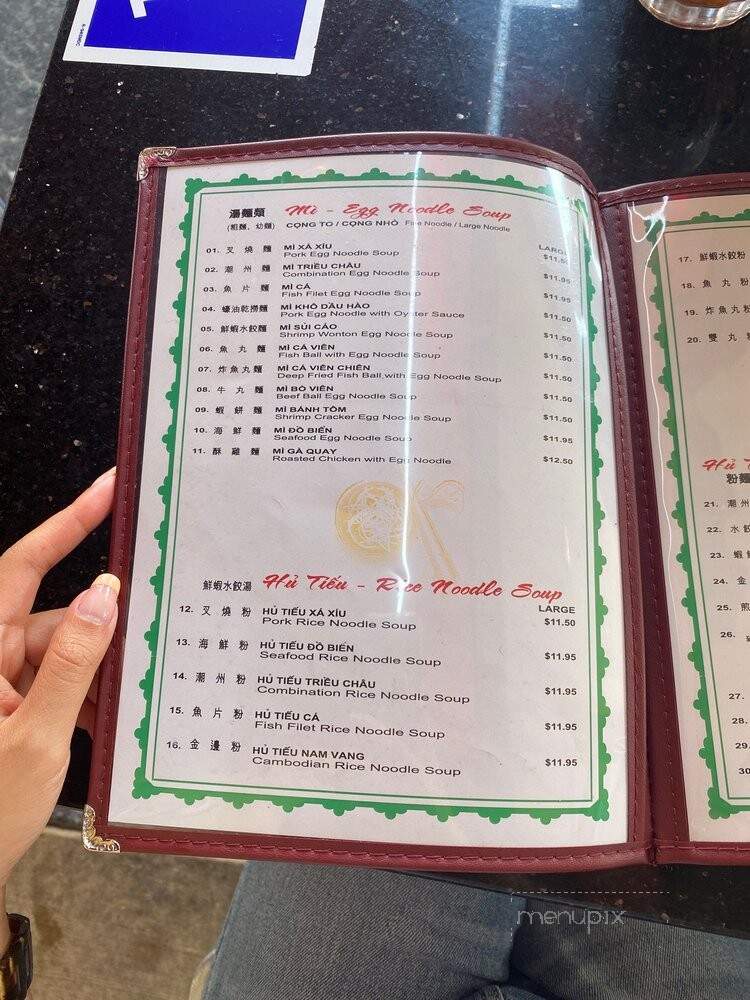 湯麵類 Mì - Egg Noodle Soup
(粗麵、幼麵) CỌNG TO / CỌNG NHỎ Fine Noodle / Large Noodle
LARGE
01. 叉燒麵 MÌ XÁ XÍU
Pork Egg Noodle Soup $11.50
02. 潮州麵 MÌ TRIỀU CHÂU
Combination Egg Noodle Soup $11.95
03. 魚片麵 MÌ CÁ
Fish Filet Egg Noodle Soup $11.95
04. 蠔油乾撈麵 MÌ KHÔ DẦU HÀO
Pork Egg Noodle with Oyster Sauce $11.50
05. 鮮蝦水餃麵 MÌ SỦI CẢO
Shrimp Wonton Egg Noodle Soup $11.50
06. 魚丸麵 MÌ CÁ VIÊN
Fish Ball with Egg Noodle Soup $11.50
07. 炸魚丸麵 MÌ CÁ VIÊN CHIÊN
Deep Fried Fish Ball with Egg Noodle Soup $11.50
08. 牛丸麵 MÌ BÒ VIÊN
Beef Ball Egg Noodle Soup $11.50
09. 蝦餅麵 MÌ BÁNH TÔM
Shrimp Cracker Egg Noodle Soup $11.50
10. 海鮮麵 MÌ ĐỒ BIỂN
Seafood Egg Noodle Soup $11.95
11. 酥雞麵 MÌ GÀ QUAY
Roasted Chicken with Egg Noodle $12.50
鮮蝦水餃湯 Hủ Tiếu - Rice Noodle Soup
LARGE
12. 叉燒粉 HỦ TIẾU XÁ XÍU
Pork Rice Noodle Soup $11.50
13. 海鮮粉 HỦ TIẾU ĐỒ BIỂN
Seafood Rice Noodle Soup $11.95
14. 潮州粉 HỦ TIẾU TRIỀU CHÂU
Combination Rice Noodle Soup $11.95
15. 魚片粉 HỦ TIẾU CÁ
Fish Filet Rice Noodle Soup $11.95
16. 金邊粉 HỦ TIẾU NAM VANG
Cambodian Rice Noodle Soup $11.95
17. 鮮蝦水餃粉
18. 魚丸粉
19. 炸魚丸粉
20. 雙丸
Hủ
粉麵
21. 潮州
22. 水餃
23. 蝦
24. 金
25. 煎
26.
27.
28.
29.
30
menupix